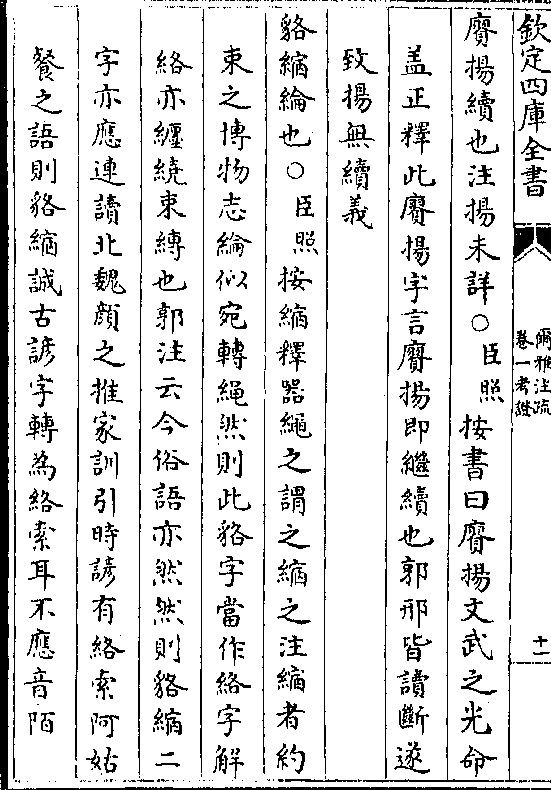 欽定四庫全書
爾雅注疏
卷一考證
十一
賡揚續也注揚未詳○臣照按書曰賡揚文武之光命
蓋正釋此賡揚字言賡揚即繼續也郭邢皆讀斷遂
致揚無續義
貉縮綸也○臣照按縮釋器繩之謂之縮之注縮者約
束之博物志綸似宛轉繩然則此貉字當作絡字解
絡亦纏繞束縛也郭注云今俗語亦然然則貉縮二
字亦應連讀北魏顔之推家訓引時諺有絡索阿姑
餐之語則貉縮誠古諺字轉為絡索耳不應音陌